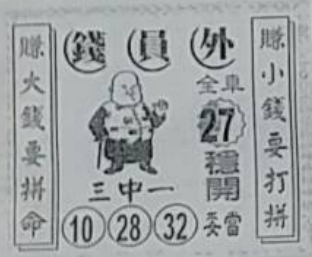 賺小錢要打拼
錢員外
全車
27
穩開
三中一
10 28 32 妥當
賺大錢要拼命